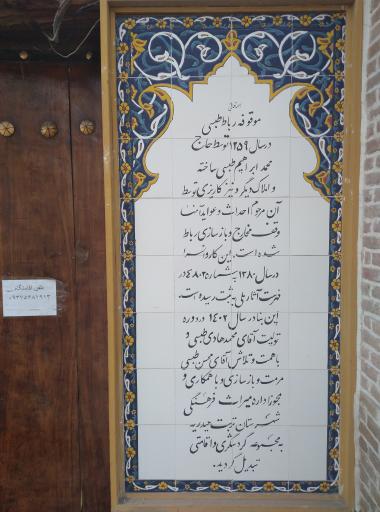 موقوفه رباط طبسی
در سال ۱۲۵۹ توسط حاج
محمد ابراهیم طبسی ساخته
و املاک دیگر و نیز کاریزی توسط
آن مرحوم احداث و عواید آنها
وقف مخارج و بازسازی رباط
شده است. این کاروانسرا
در سال ۱۳۸۰ به شماره ۴۸۰۳ در
فهرست آثار ملی به ثبت رسیده است.
این بنا در سال ۱۴۰۲ در دوره
تولیت آقای محمدهادی طبسی و
با همت و تلاش آقای محسن طبسی
مرمت و بازسازی و با همکاری و
مجوز اداره میراث فرهنگی
شهرستان تربت حیدریه
به مجموعه گردشگری و اقامتی
تبدیل گردید.
تلفن اقامتگاه